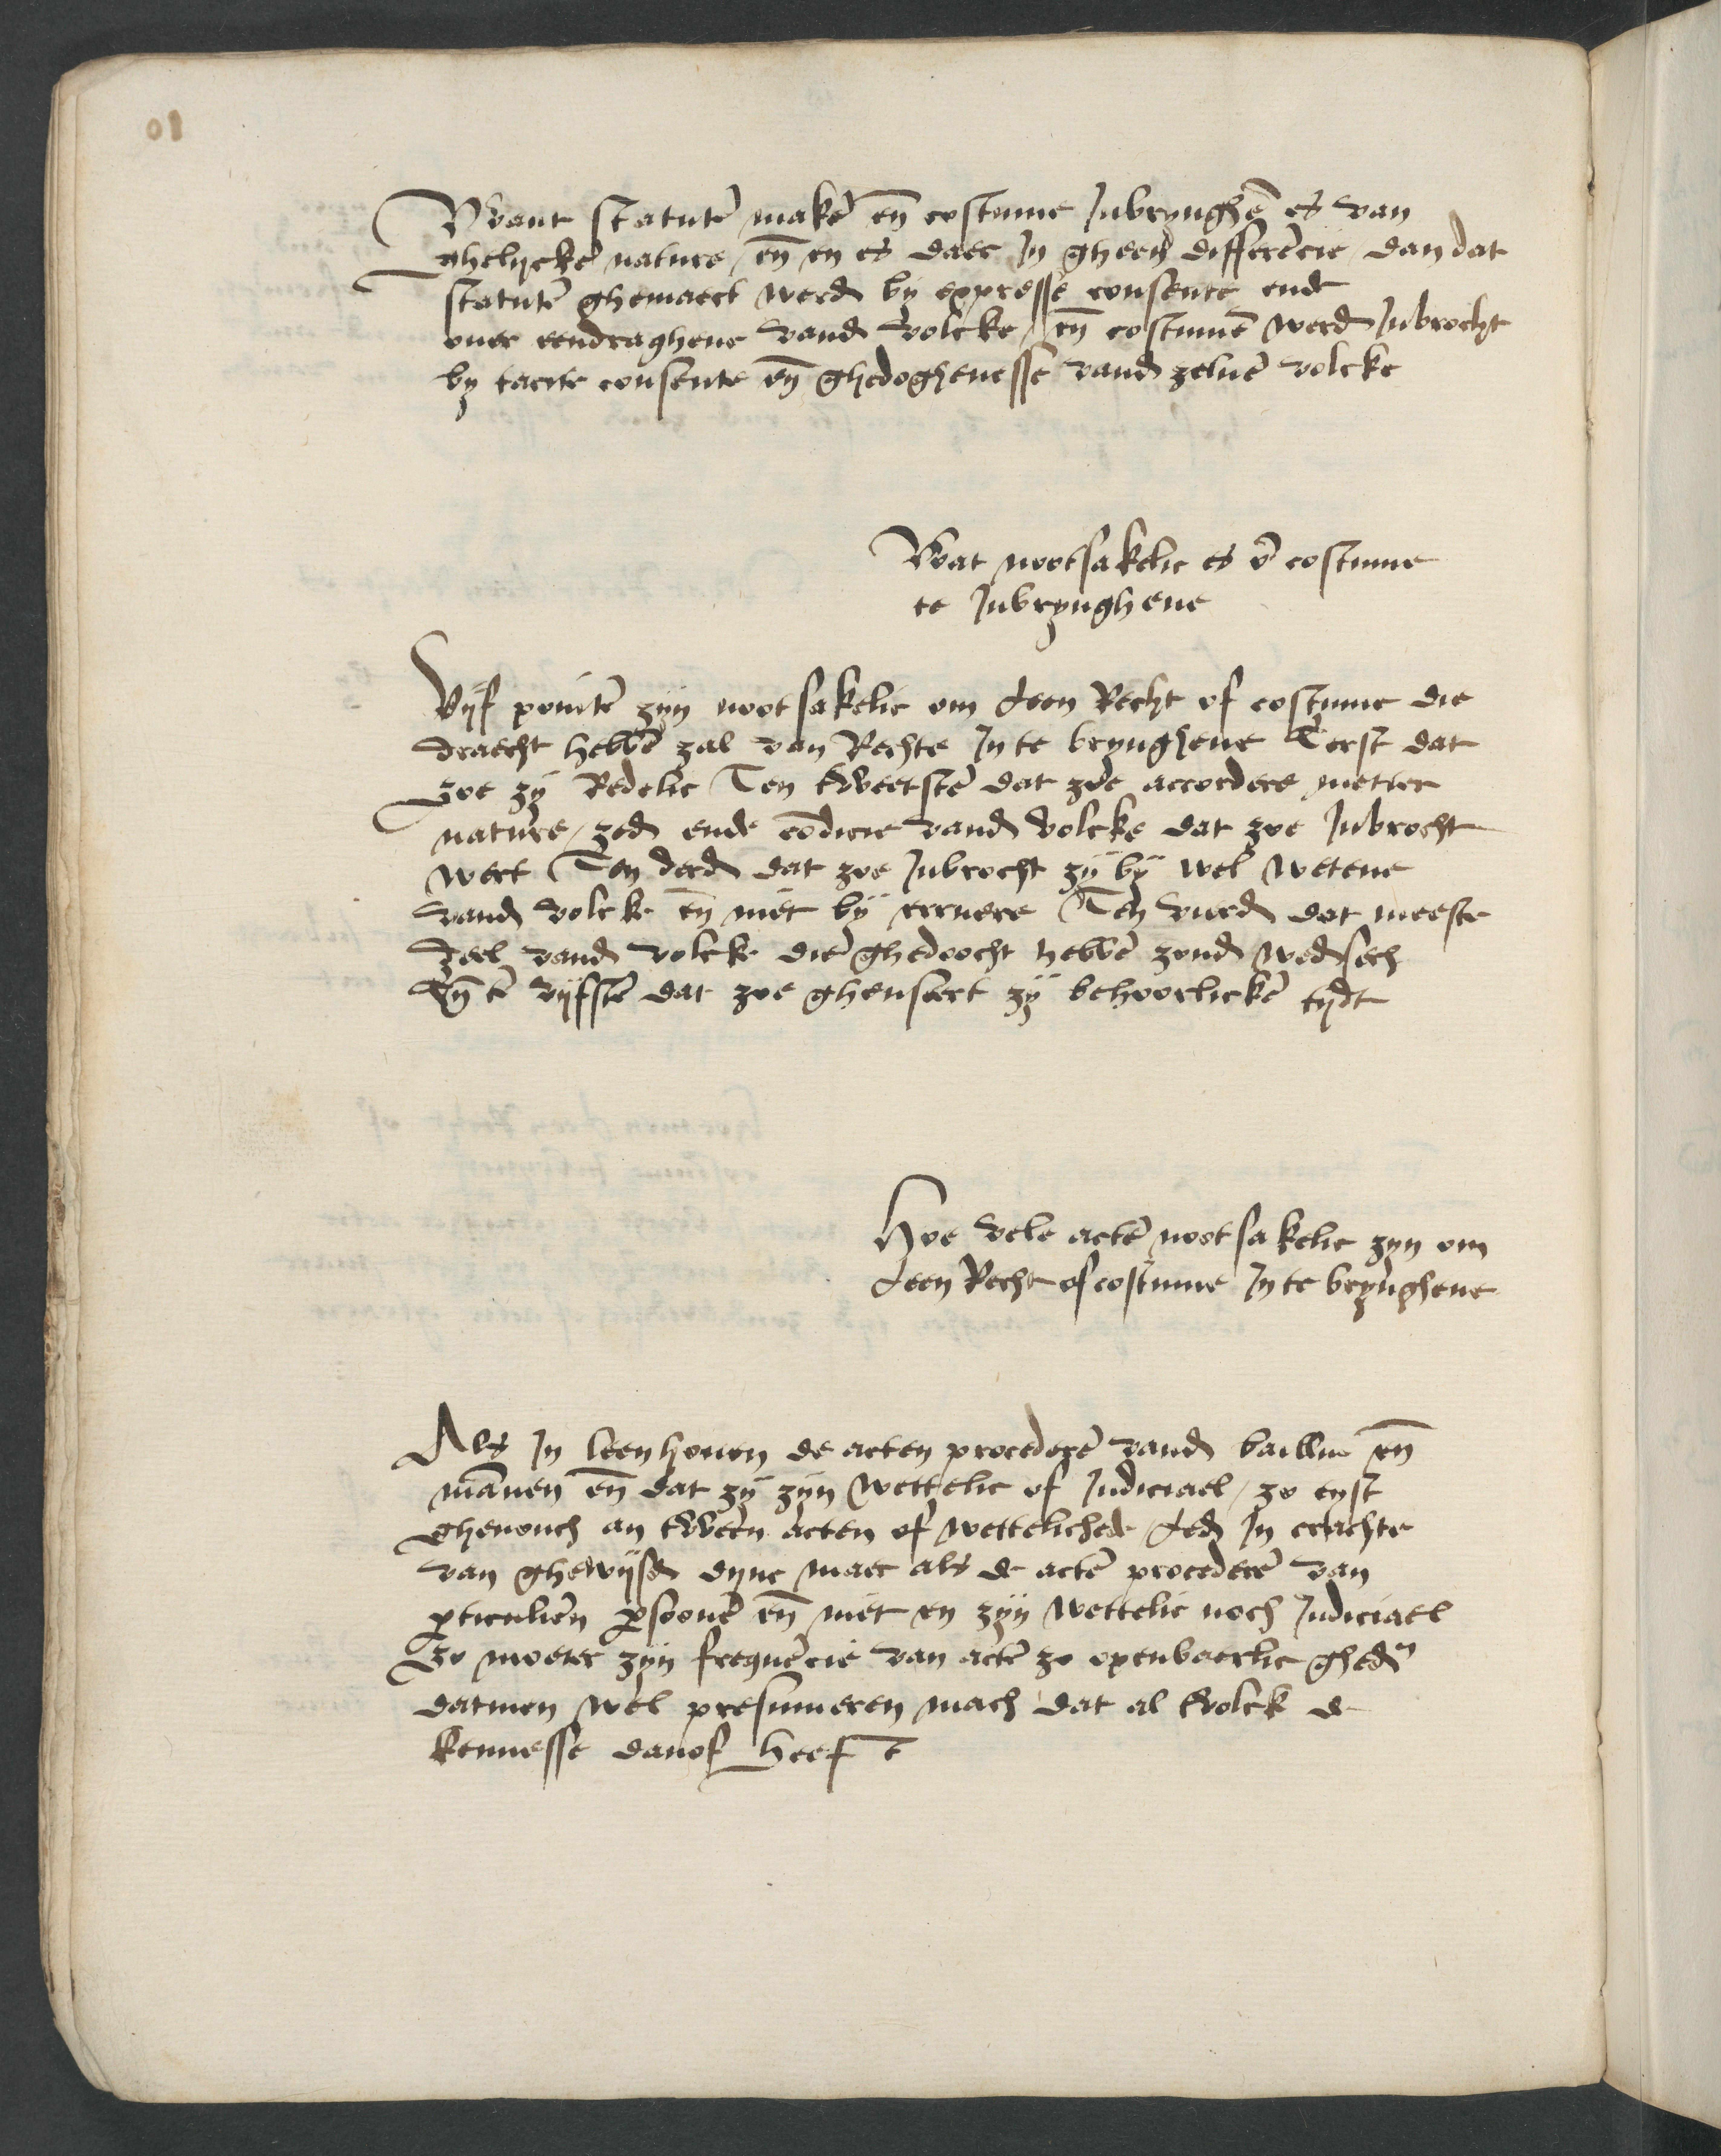 Want statutē makē eñ costume Inbrynghē es van
ghelycke nature / eñ en es daer In gheen differēcie / dan dat
statutē ghemaect werdē by expresse consente ende
ouer eendraghene vandē volcke / eñ costumē werdē Inbrocht
by tacite consente eñ ghedoghenesse vandē zeluē volcke
Wat nootsakelic es ō costume
te Inbrynghene
Vyf pointē zyn nootsakelic om Leen Recht of costume die
cracht hebbē zal van Rechte In te brynghene Eerst dat
zoe zy Redelic Ten tweetstē dat zoe accordere metter
nature / zedē ende cōdicie vandē volcke dat zoe Inbrocht
wert Ten derdē dat zoe Inbrocht zy by wel wetene
vandē volcke eñ niet by erruere Ten vierdē dat meeste
deel vandē volcke die ghedoocht hebbē zondē wedsech
Eñ tē vyfstē dat zoe gheuseert zy behoorlickē tydt
Hoe vele actē nootsakelic zyn om
Leen Recht of costume In te brynghene
Als In leenhouen de acten procederē vandē bailliu eñ
mānen eñ dat zy zyn wettelic of Judiciael / zo eyst
ghenouch an tween acten of wettelichede ledē In crachte
van ghewysdē dync maer als de actē procederē van
pticuliern psoonē eñ niet en zyn wettelic noch Judiciael
Zo moeter zyn frequēcie van actē zo openbaerlic ghedn
datmen wel presumeren mach dat al tvolck de
kennesse danof heeft